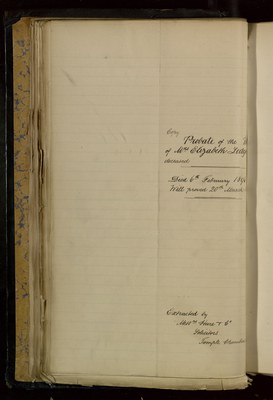 Copy
Probate of the
of Mrs Elizabeth
deceased
Died 6th February 189
Will proved 20th March
Extracted by
Messrs & Co
Solicitors
Temple